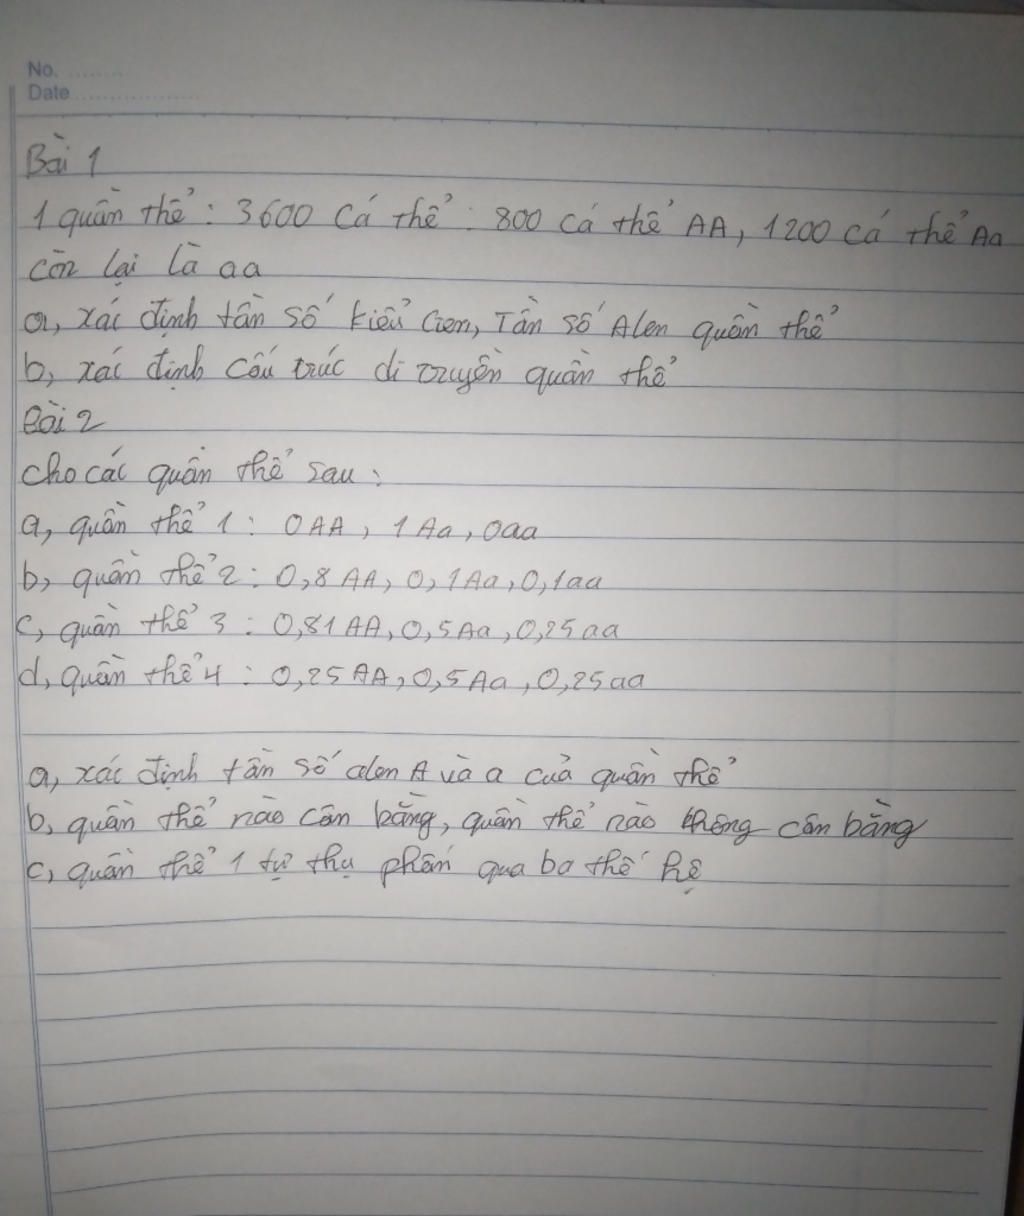 No. ........
Date ..................
Bài 1
1 quần thể : 3600 cá thể : 800 cá thể AA, 1200 cá thể Aa
còn lại là aa
a, xác định tần số kiểu Gen, Tần số Alen quần thể
b, xác định cấu trúc di truyền quần thể
Bài 2
cho các quần thể sau :
a, quần thể 1 : 0AA, 1Aa, 0aa
b, quần thể 2 : 0,8 AA, 0,1Aa, 0,1aa
c, quần thể 3 : 0,81 AA, 0,5Aa, 0,25 aa
d, quần thể 4 : 0,25 AA, 0,5 Aa, 0,25aa
a, xác định tần số alen A và a của quần thể
b, quần thể nào cân bằng, quần thể nào không cân bằng
c, quần thể 1 tự thụ phấn qua ba thế hệ